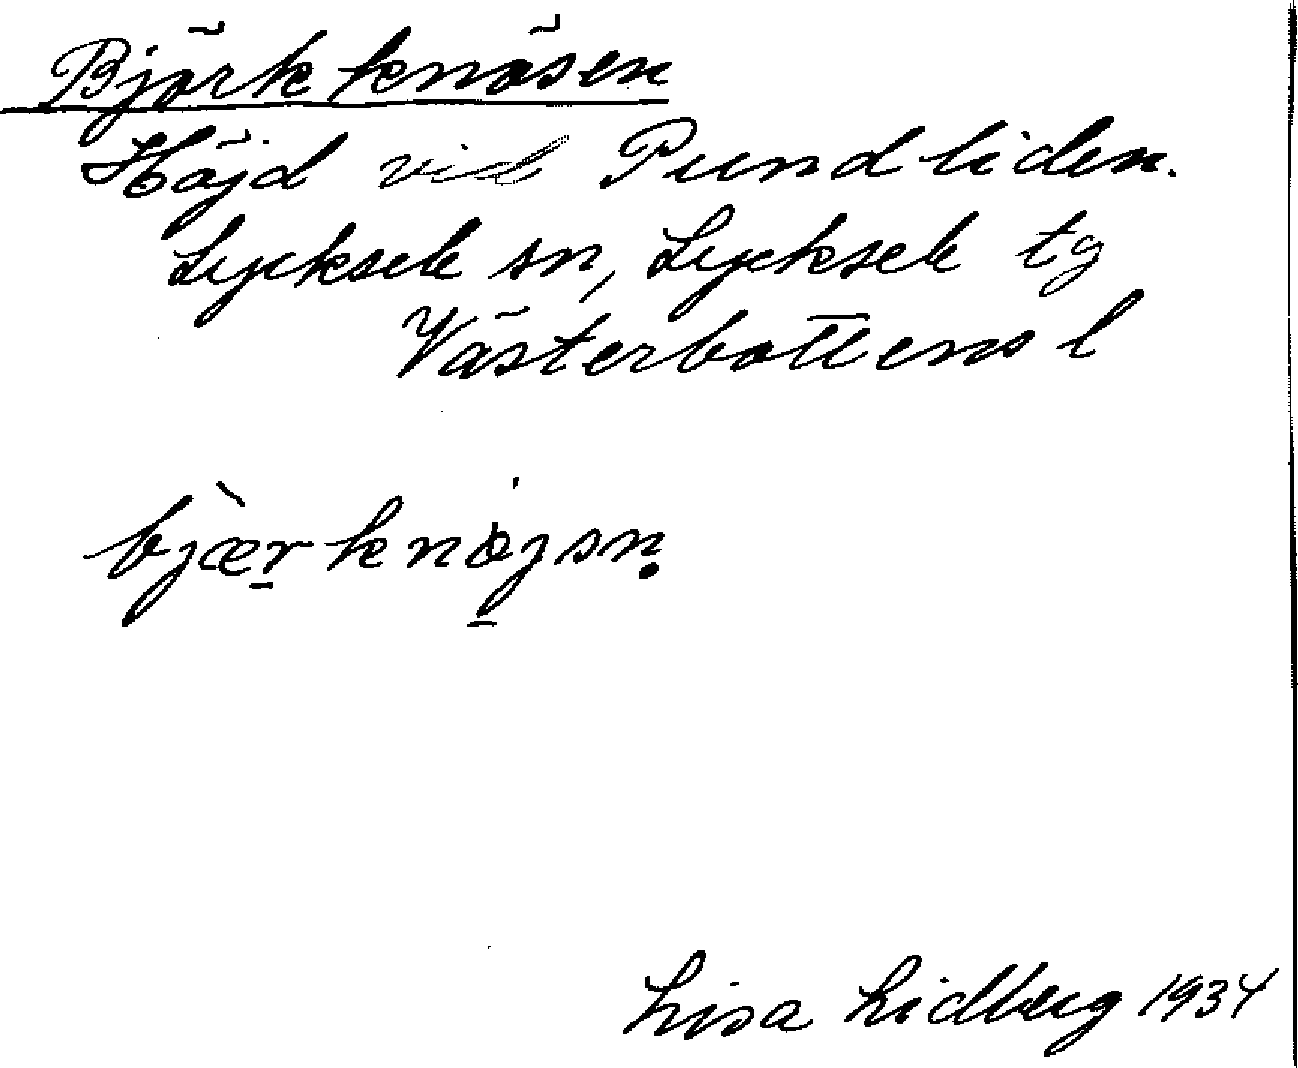 Björkknösen
Höjd vid Pundliden.
Lycksele sn, Lycksele tg
Västerbottens l
bjærknøjsn̥
Lisa Lidberg 1934